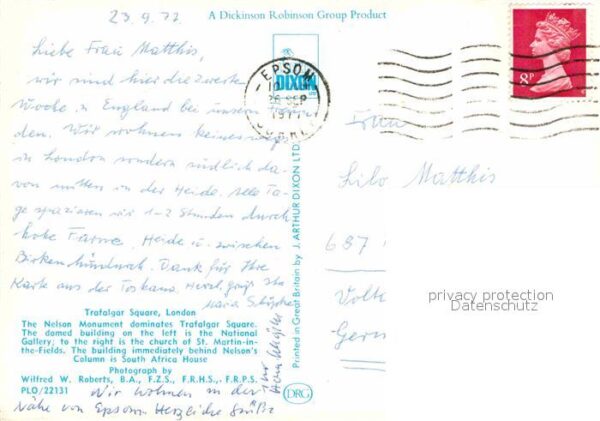 23.9.77
A Dickinson Robinson Group Product
Liebe Frau Matthis,
wir sind hier die zweite
Woche in England bei unseren Freun
den. Wir wohnen keineswegs
in London sondern südlich da-
von mitten in der Heide. Alle Ta-
ge spazieren wir 1-2 Stunden durch
hohe Farne, Heide u. zwischen
Birken hindurch. Dank für Ihre
Karte aus der Toskana. Herzl. grüßt Sie
Maria
Trafalgar Square, London
The Nelson Monument dominates Trafalgar Square.
The domed building on the left is the National
Gallery; to the right is the church of St. Martin-in-
the-Fields. The building immediately behind Nelson's
Column is South Africa House
Photograph by
Wilfred W. Roberts, B.A., F.Z.S., F.R.H.S., F.R.P.S.
PLO/22131
Wir wohnen in der
Nähe von Epsom. Herzliche Grüße
Ihr
Printed in Great Britain by J. ARTHUR DIXON LTD.
DIXON
DRG
EPSOM
SEP
1977
SURREY
8P
Frau
Lilo Matthis
687
Volk
Germ
privacy protection
Datenschutz